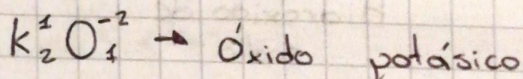 K₂¹O₁⁻² → Óxido potásico